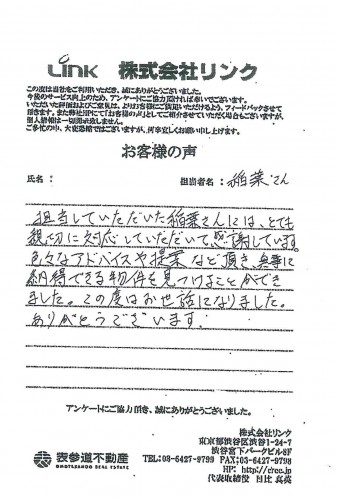 Link 株式会社リンク
この度は当社をご利用いただき、誠にありがとうございました。
今後のサービス向上のため、アンケートにご協力頂ければ幸いでございます。
いただいた評価およびご意見は、よりお客様にご満足いただけるよう、フィードバックさせて
頂きます。また弊社HPにて「お客様の声」としてご紹介させていただく場合もございますが、
個人情報は一切掲示致しません。
ご多忙の中、大変恐縮ではございますが、何卒宜しくお願い申し上げます。
お客様の声
氏名： 担当者名：稲葉さん
担当していただいた稲葉さんには、とても
親切に対応していただいて感謝しています。
色々なアドバイスや提案など頂き、無事に
納得できる物件を見つけることができ
ました。この度はお世話になりました。
ありがとうございます。
アンケートにご協力頂き、誠にありがとうございました。
株式会社リンク
東京都渋谷区渋谷1-24-7
渋谷宮下パークビル8F
TEL:03-6427-9799 FAX:03-6427-9798
HP: http://crcc.jp
代表取締役 日比 真英
表参道不動産
OMOTESANDO REAL ESTATE